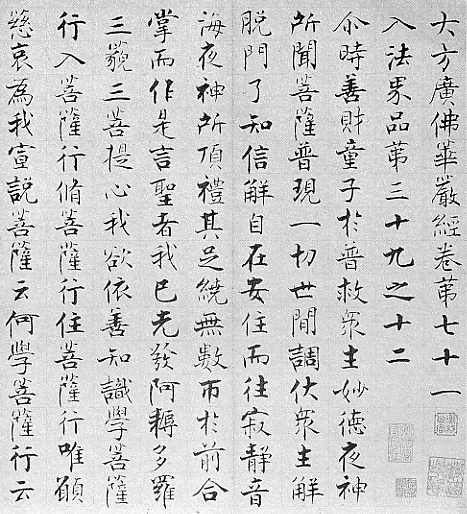 大方廣佛華嚴經卷第七十一
入法界品第三十九之十二
尒時善財童子於普救衆生妙德夜神
所聞菩薩普現一切世間調伏衆生解
脫門了知信解自在安住而往寂靜音
海夜神所頂禮其足繞無數帀於前合
掌而作是言聖者我已先發阿耨多羅
三藐三菩提心我欲依善知識學菩薩
行入菩薩行脩菩薩行住菩薩行唯願
慈哀為我宣說菩薩云何學菩薩行云